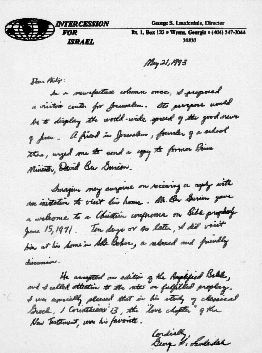 INTERCESSION
FOR
ISRAEL
George S. Lauderdale, Director
Rt. 1, Box • Georgia • (404)
May 21, 1993
Dear
In a newspaper column once, I proposed
a visitors center for Jerusalem. Its purpose would
be to display the world-wide spread of the good news
of Jesus. A friend in Jerusalem, founder of a school
there, urged me to send a copy to former Prime
Minister, David Ben Gurion.
Imagine my surprise on receiving a reply with
an invitation to visit his home. Mr. Ben Gurion gave
a welcome to a Christian conference on Bible prophecy
June 15, 1971. Ten days or so later, I did visit
him at his home in Sde Boker, a relaxed and friendly
discussion.
He accepted an edition of the Amplified Bible,
and I called attention to the notes on fulfilled prophecy.
I was especially pleased that in his study of classical
Greek, I Corinthians 13, the "love chapter" of the
New Testament, was his favorite.
Cordially,
George S. Lauderdale